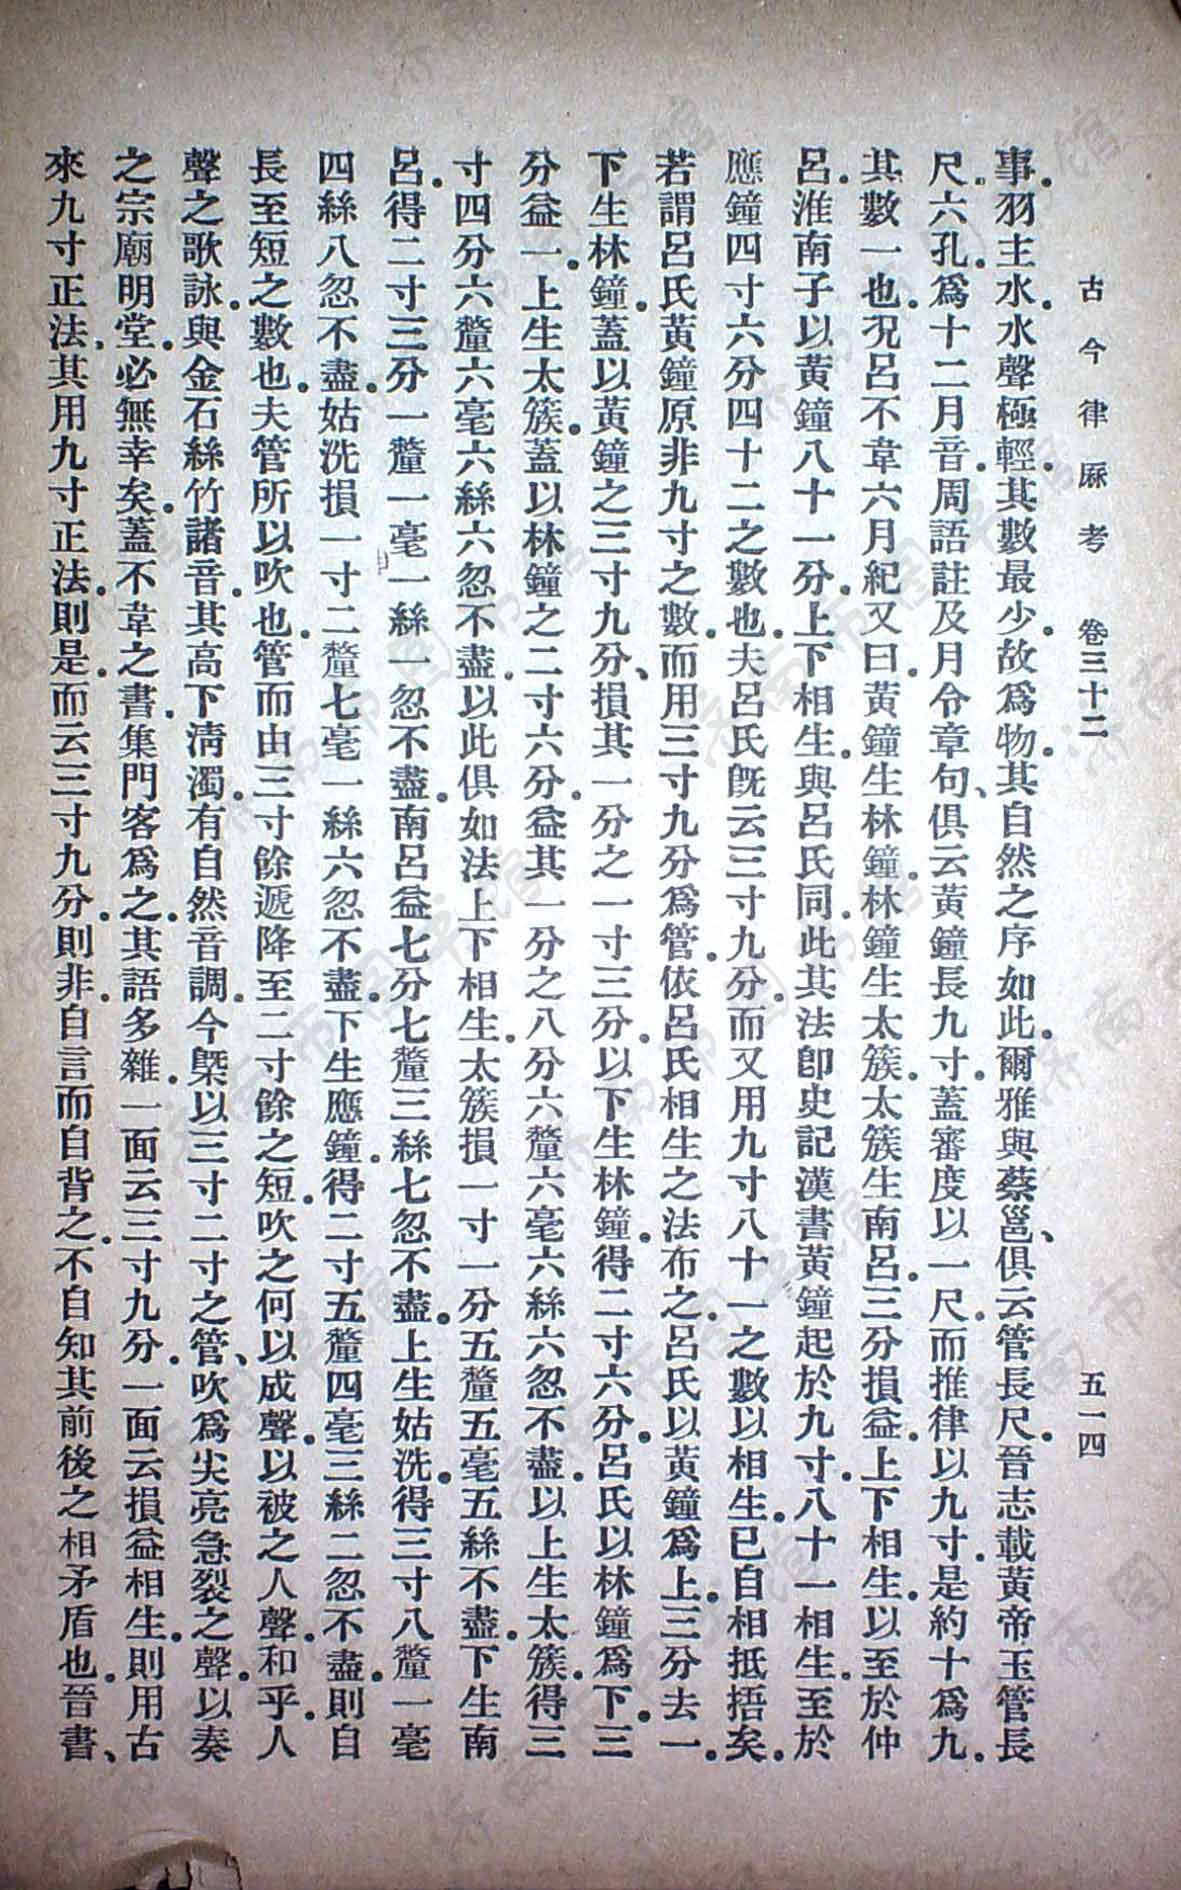 古今律厤考 卷三十二 五一四
事。羽主水。水聲極輕。其數最少。故爲物。其自然之序如此。爾雅與蔡邕、俱云管長尺。晉志載黃帝玉管長
尺。六孔。爲十二月音。周語註及月令章句、俱云黃鐘長九寸。蓋審度以一尺。而推律以九寸。是約十爲九。
其數一也。況呂不韋六月紀又曰。黃鐘生林鐘。林鐘生太簇。太簇生南呂。三分損益。上下相生。以至於仲
呂。淮南子以黃鐘八十一分。上下相生。與呂氏同。此其法卽史記漢書黃鐘起於九寸。八十一相生。至於
應鐘四寸六分四十二之數也。夫呂氏旣云三寸九分。而又用九寸八十一之數以相生。已自相抵捂矣。
若謂呂氏黃鐘原非九寸之數。而用三寸九分爲管。依呂氏相生之法布之。呂氏以黃鐘爲上。三分去一。
下生林鐘。蓋以黃鐘之三寸九分、損其一分之一寸三分。以下生林鐘。得二寸六分。呂氏以林鐘爲下。三
分益一。上生太簇。蓋以林鐘之二寸六分。益其一分之八分六釐六毫六絲六忽不盡。以上生太簇。得三
寸四分六釐六毫六絲六忽不盡。以此俱如法上下相生。太簇損一寸一分五釐五毫五絲不盡。下生南
呂。得二寸三分一釐一毫一絲一忽不盡。南呂益七分七釐三絲七忽不盡。上生姑洗。得三寸八釐一毫
四絲八忽不盡。姑洗損一寸二釐七毫一絲六忽不盡。下生應鐘。得二寸五釐四毫三絲二忽不盡。則自
長至短之數也。夫管所以吹也。管而由三寸餘遞降至二寸餘之短。吹之何以成聲。以被之人聲。和乎。人
聲之歌詠。與金石絲竹諸音。其高下淸濁。有自然音調。今槩以三寸二寸之管、吹爲尖亮急裂之聲。以奏
之宗廟明堂。必無幸矣。蓋不韋之書。集門客爲之。其語多雜。一面云三寸九分。一面云損益相生。則用古
來九寸正法、其用九寸正法。則是。而云三寸九分。則非。自言而自背之。不自知其前後之相矛盾也。晉書、